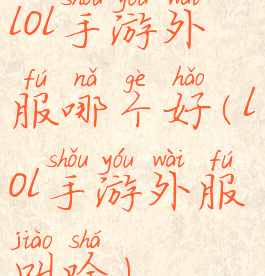 shǒu yóu wài
lol手游外
fú nǎ gè hǎo
服哪个好(l
shǒu yóu wài fú
ol手游外服
jiào shá
叫啥)